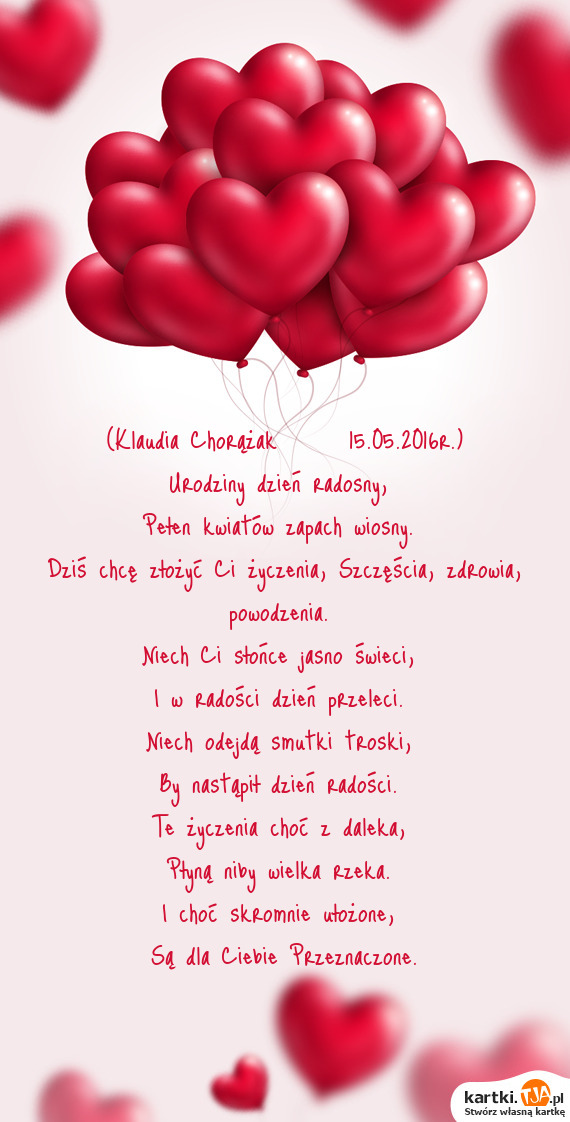 (Klaudia Chorążak 15.05.2016r.)
Urodziny dzień radosny,
Pełen kwiatów zapach wiosny.
Dziś chcę złożyć Ci życzenia, Szczęścia, zdrowia,
powodzenia.
Niech Ci słońce jasno świeci,
I w radości dzień przeleci.
Niech odejdą smutki troski,
By nastąpił dzień radości.
Te życzenia choć z daleka,
Płyną niby wielka rzeka.
I choć skromnie ułożone,
Są dla Ciebie Przeznaczone.
kartki.TJA.pl
Stwórz własną kartkę